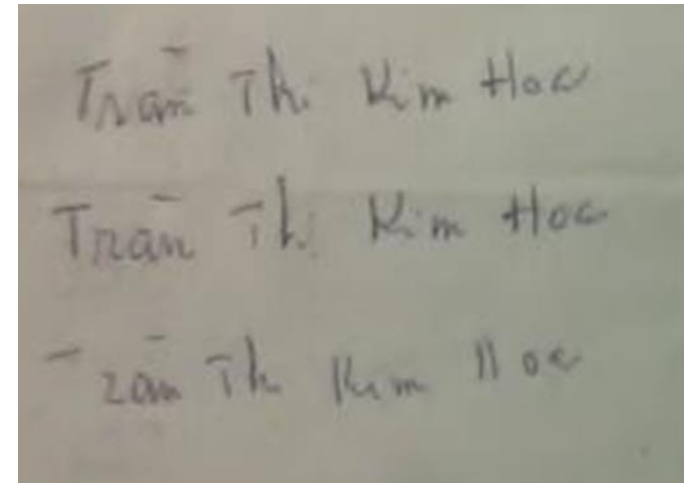 Trần Thị Kim Hoa
Trần Thị Kim Hoa
Trần Thị Kim Hoa